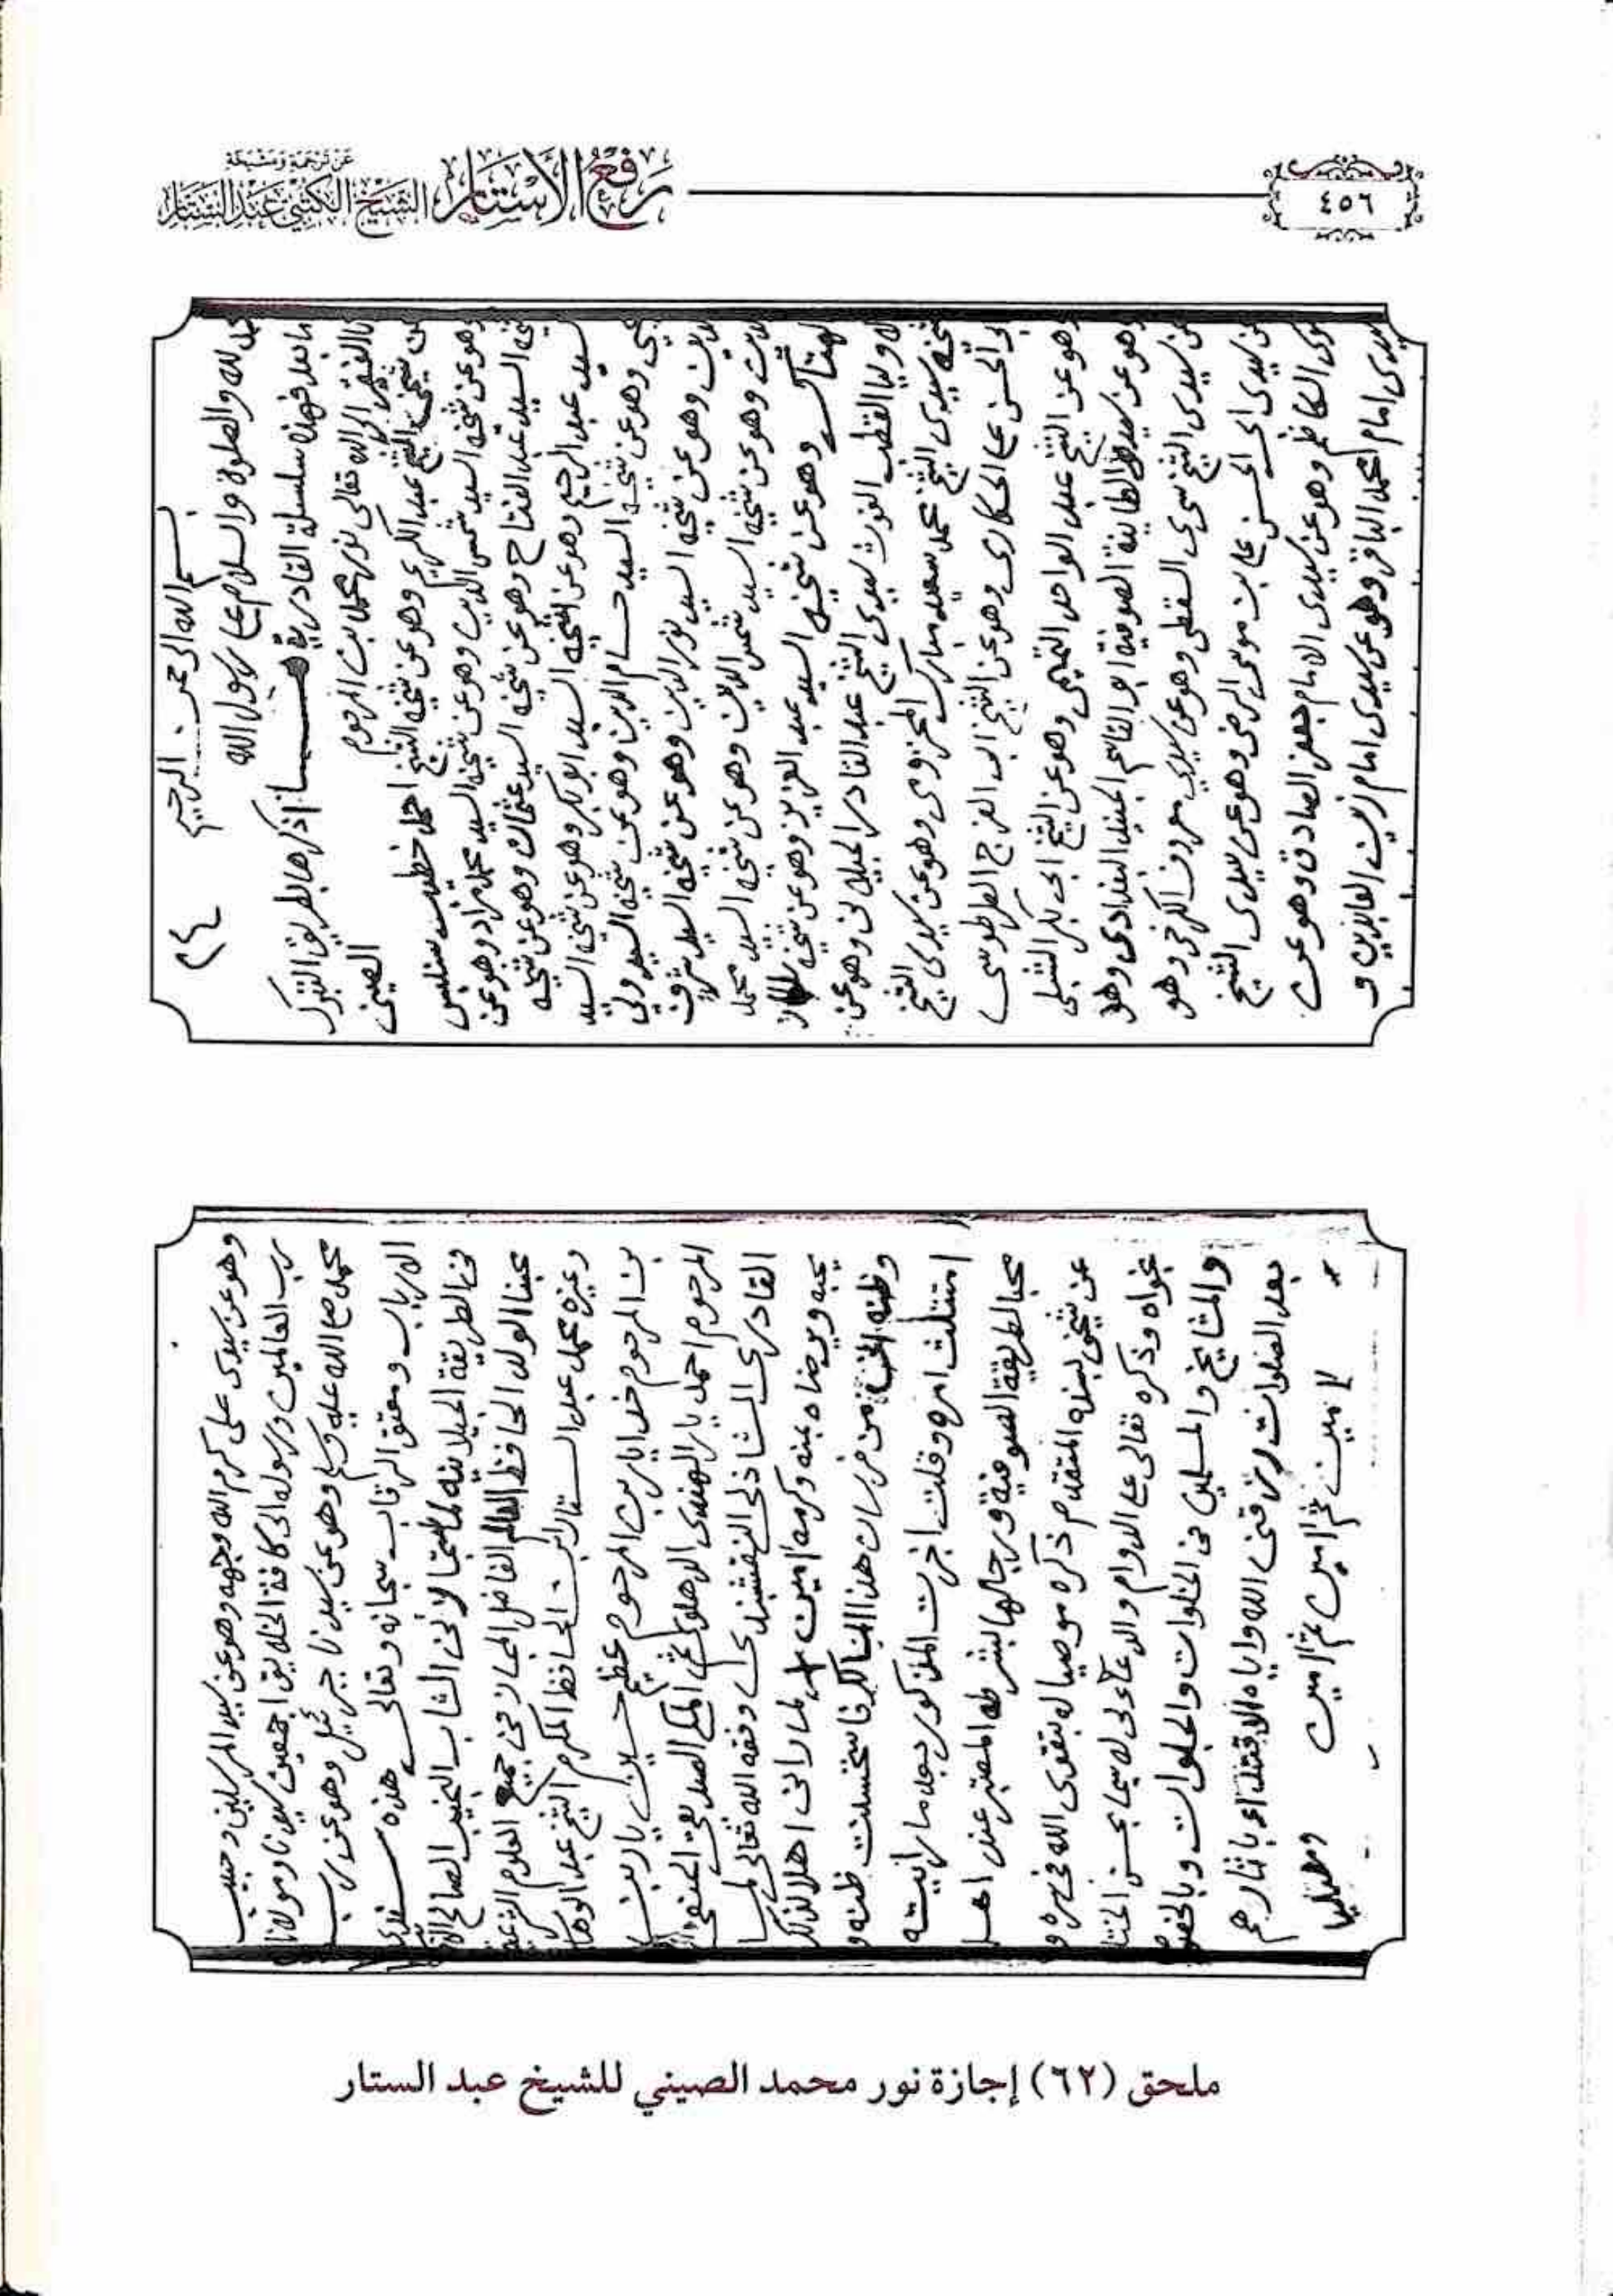 ٤٥٦
رفع الأستار
عن ترجمة ومشيخة
الشيخ الكتبي عبد الستار
٢٤
بسم الله الرحمن الرحيم
لله والصلوة والسلام على رسول الله
بعد فهذه سلسلة القادرية اذكرها بطريق التبرك
الفقير الى الله تعالى نور محمد بن المرحوم الصينى
شيخى الشيخ عبد الكريم وهو عن شيخه الشيخ احمد خطيب سنبس
وهو عن شيخه السيد شمس الدين وهو عن شيخه السيد محمد مراد وهو عن
شيخه السيد عبد الفتاح وهو عن شيخه السيد عثمان وهو عن شيخه
السيد عبد الرحيم وهو عن شيخه السيد ابو بكر وهو عن شيخه السيد
يحيى وهو عن شيخه السيد حسام الدين وهو عن شيخه السيد ولي
الدين وهو عن شيخه السيد نور الدين وهو عن شيخه السيد شرف
الدين وهو عن شيخه السيد شمس الدين وهو عن شيخه السيد محمد
الهتاك وهو عن شيخه السيد عبد العزيز وهو عن شيخه
الاوليا القطب الغوث سيدي الشيخ عبد القادر الجيلانى وهو عن
شيخه سيدى الشيخ محمد سعيد مبارك المخزومى وهو عن سيدى الشيخ
ابى الحسن على الحكارى وهو عن الشيخ ابى الفرج الطرطوسى
وهو عن الشيخ عبد الواحد التميمى وهو عن الشيخ ابى بكر الشبلى
وهو عن سيد الطايفة الصوفية ابو القاسم الجنيد البغدادى وهو
عن سيدى الشيخ سرى السقطى وهو عن سيدي معروف الكرخى وهو
عن سيدى ابى الحسن على بن موسى الرضى وهو عن سيدى الشيخ
موسى الكاظم وهو عن سيدى الامام جعفر الصادق وهو عن
سيدى امام محمد الباقر وهو عن سيدى امام زين العابدين و
وهو عن سيدى على كرم الله وجهه وهو عن سيد المرسلين وحبيب
رب العالمين ورسوله الى كافة الخلايق اجمعين سيدنا ومولانا
محمد صلى الله عليه وسلم وهو عن سيدنا جبرئيل وهو عن رب
الارباب ومعتق الرقاب سبحانه وتعالى هذه سندى
فى الطريقة الجيلانيه لما التمس الشاب النجيب الصالح
محبنا الولد الحافظ العالم الفاضل المجاز فى جميع العلوم الشرعيه
وغيره محمد عبد الستار ابن الحافظ المكرم الشيخ عبد الوهاب
بن المرحوم خدايار بن المرحوم عظيم حسين يار بن
المرحوم احمد يار الهندى الدهلوى ثم المكى الصديقى الحنفى
القادرى الشاذلى النقشبندى وفقه الله تعالى لما
يحبه ويرضاه بمنه وكرمه امين لما رانى اهلا لذلك
وظنه من فرسان هذا فاستحسنت ظنه و
امتثلت امره وقلت اجزت المذكور بعد ما رايته
محبا لطريقة الصوفية ورجالها بشرطه المعتبر عند اهله
عن شيخى بسنده المتقدم ذكره موصيا له بتقوى الله فى سره و
نجواه وذكره تعالى على الدوام والدعاء لى لا سيما بحسن الختام
والمشايخ والمسلمين فى الخلوات والجلوات وبالخصوص
بعد الصلوات رزقنى الله واياه الاقتداء باثارهم
لا مين ثم امين ثم امين
ملحق (٦٢) إجازة نور محمد الصيني للشيخ عبد الستار